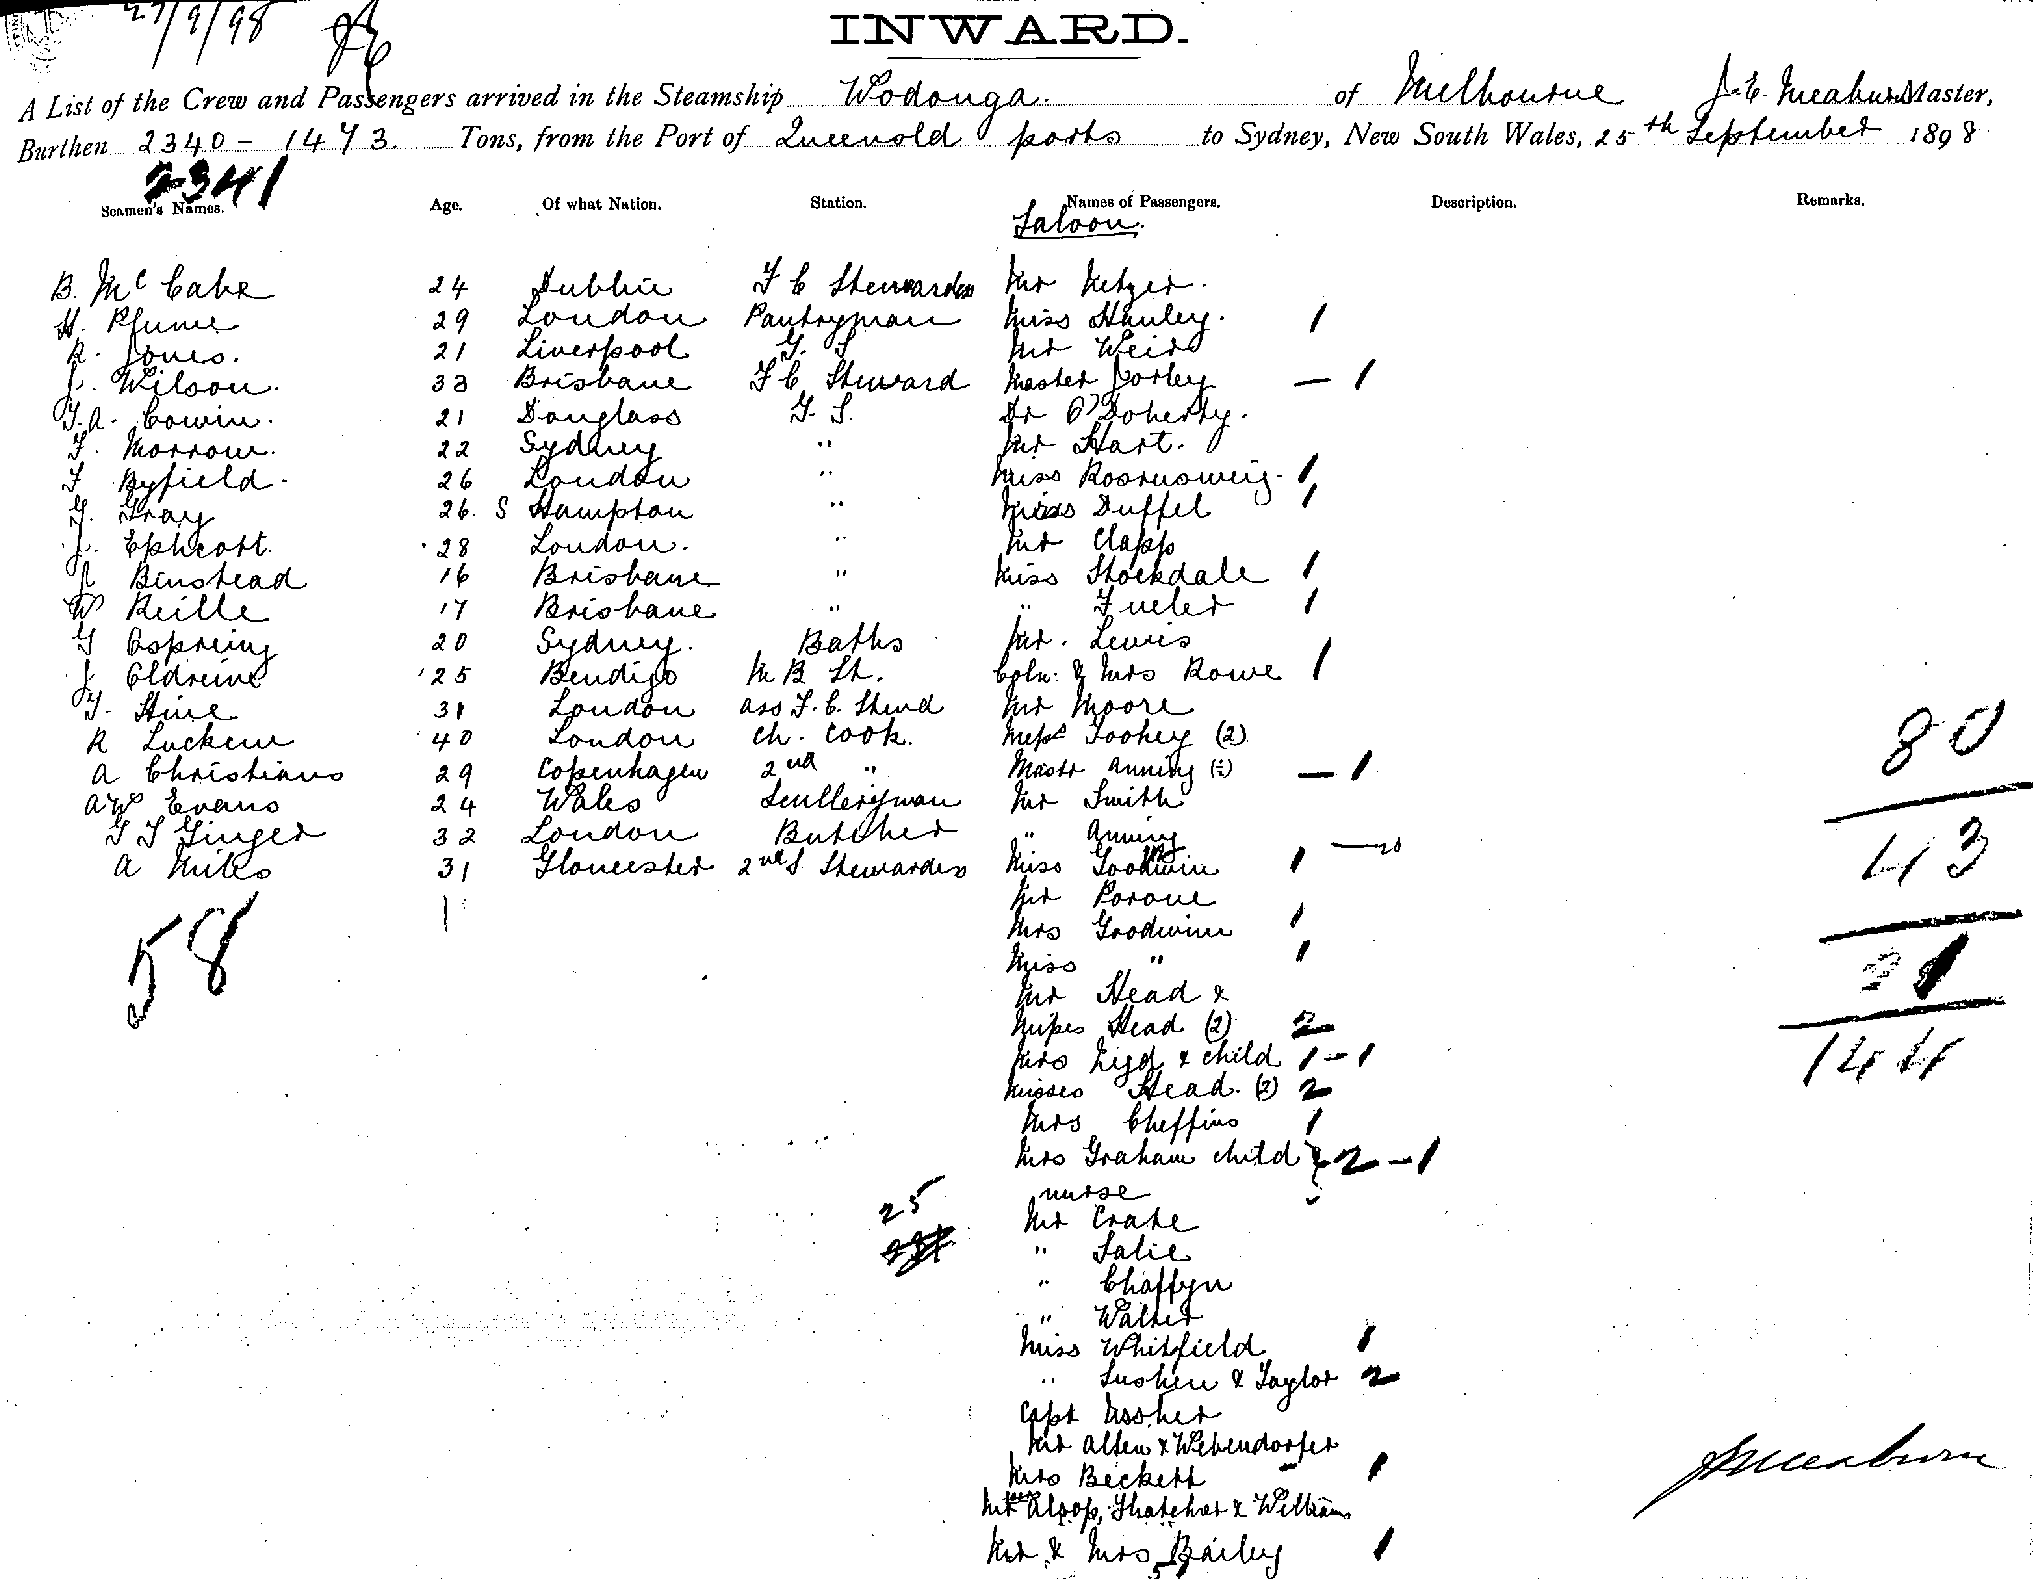 27/9/98
INWARD.
A List of the Crew and Passengers arrived in the Steamship Wodonga. of Melbourne J. E. Meaburn Master,
Burthen 2340 - 1473. Tons, from the Port of Queensld ports to Sydney, New South Wales, 25th September 1898
2341
Seamen's Names. Age. Of what Nation. Station. Names of Passengers. Description. Remarks.
Saloon.
B. McCabe 24 Dublin F C Stewardess Mr Metzer.
H. Plume 29 London Pantryman Miss Hanley. 1
R. Jones. 21 Liverpool G. S Mr Weir
J. Wilson. 33 Brisbane F C Steward Master Jorley — 1
T. A. Cowin. 21 Douglass G. S. Dr O'Doherty.
F. Morrow. 22 Sydney " Mr Hart.
F Byfield. 26 London " Miss Rosensweig. 1
G. Gray 26. S Hampton " Miss Duffel 1
J. Ephcott. 28 London. " Mr Clapp
J Binstead 16 Brisbane " Miss Stockdale 1
W Reille 17 Brisbane " " Fueler 1
G Ospreing 20 Sydney. Baths Mr. Lewis
J. Eldreine 25 Bendigo M B St. Coln: & Mrs Rowe 1
G. Hine 31 London ass F. C. Stewd Mr Moore
R Lucken 40 London Ch. Cook. Messrs Toohey (2)
80
A Christians 29 Copenhagen 2nd " Mastr Anning (2) — 1
A W Evans 24 Wales Sculleryman Mr Smith
G T Ginger 32 London Butcher " Anning
43
A Miles 31 Gloucester 2nd S Stewardess Miss Goodwin 1
Mr Porone
Mrs Goodwin 1
58
Miss " 1
21
Mr Head &
Misses Head (2) 2
144
Mrs Ligd & child 1 - 1
Misses Head. (2) 2
Mrs Cheffins 1
Mrs Graham child 2 - 1
nurse
25
Mr Crate
" Salie
" Chaffyn
" Walter
Miss Whitfield 1
" Lushen & Taylor 2
Capt Ussher
Mr Allen & Webendorfer
Mrs Beckett 1
J E Meaburn
Alsop, Thatcher & Williams
Mr & Mrs Bailey 1